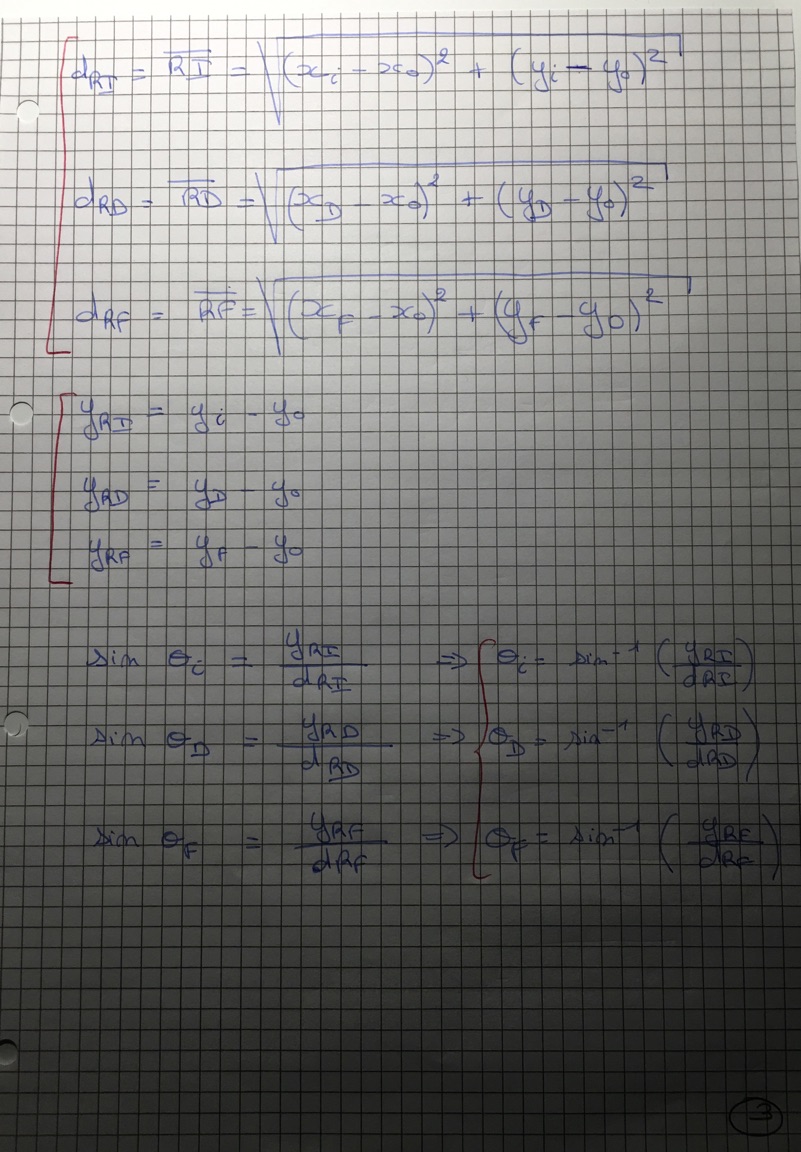 d_RI = R̅I̅ = √((x_i − x_0)² + (y_i − y_0)²)
d_RD = R̅D̅ = √((x_D − x_0)² + (y_D − y_0)²)
d_RF = R̅F̅ = √((x_F − x_0)² + (y_F − y_0)²)
y_RI = y_i − y_0
y_RD = y_D − y_0
y_RF = y_F − y_0
sin θ_i = y_RI / d_RI ⇒ θ_i = sin⁻¹ (y_RI / d_RI)
sin θ_D = y_RD / d_RD ⇒ θ_D = sin⁻¹ (y_RD / d_RD)
sin θ_F = y_RF / d_RF ⇒ θ_F = sin⁻¹ (y_RF / d_RF)
3